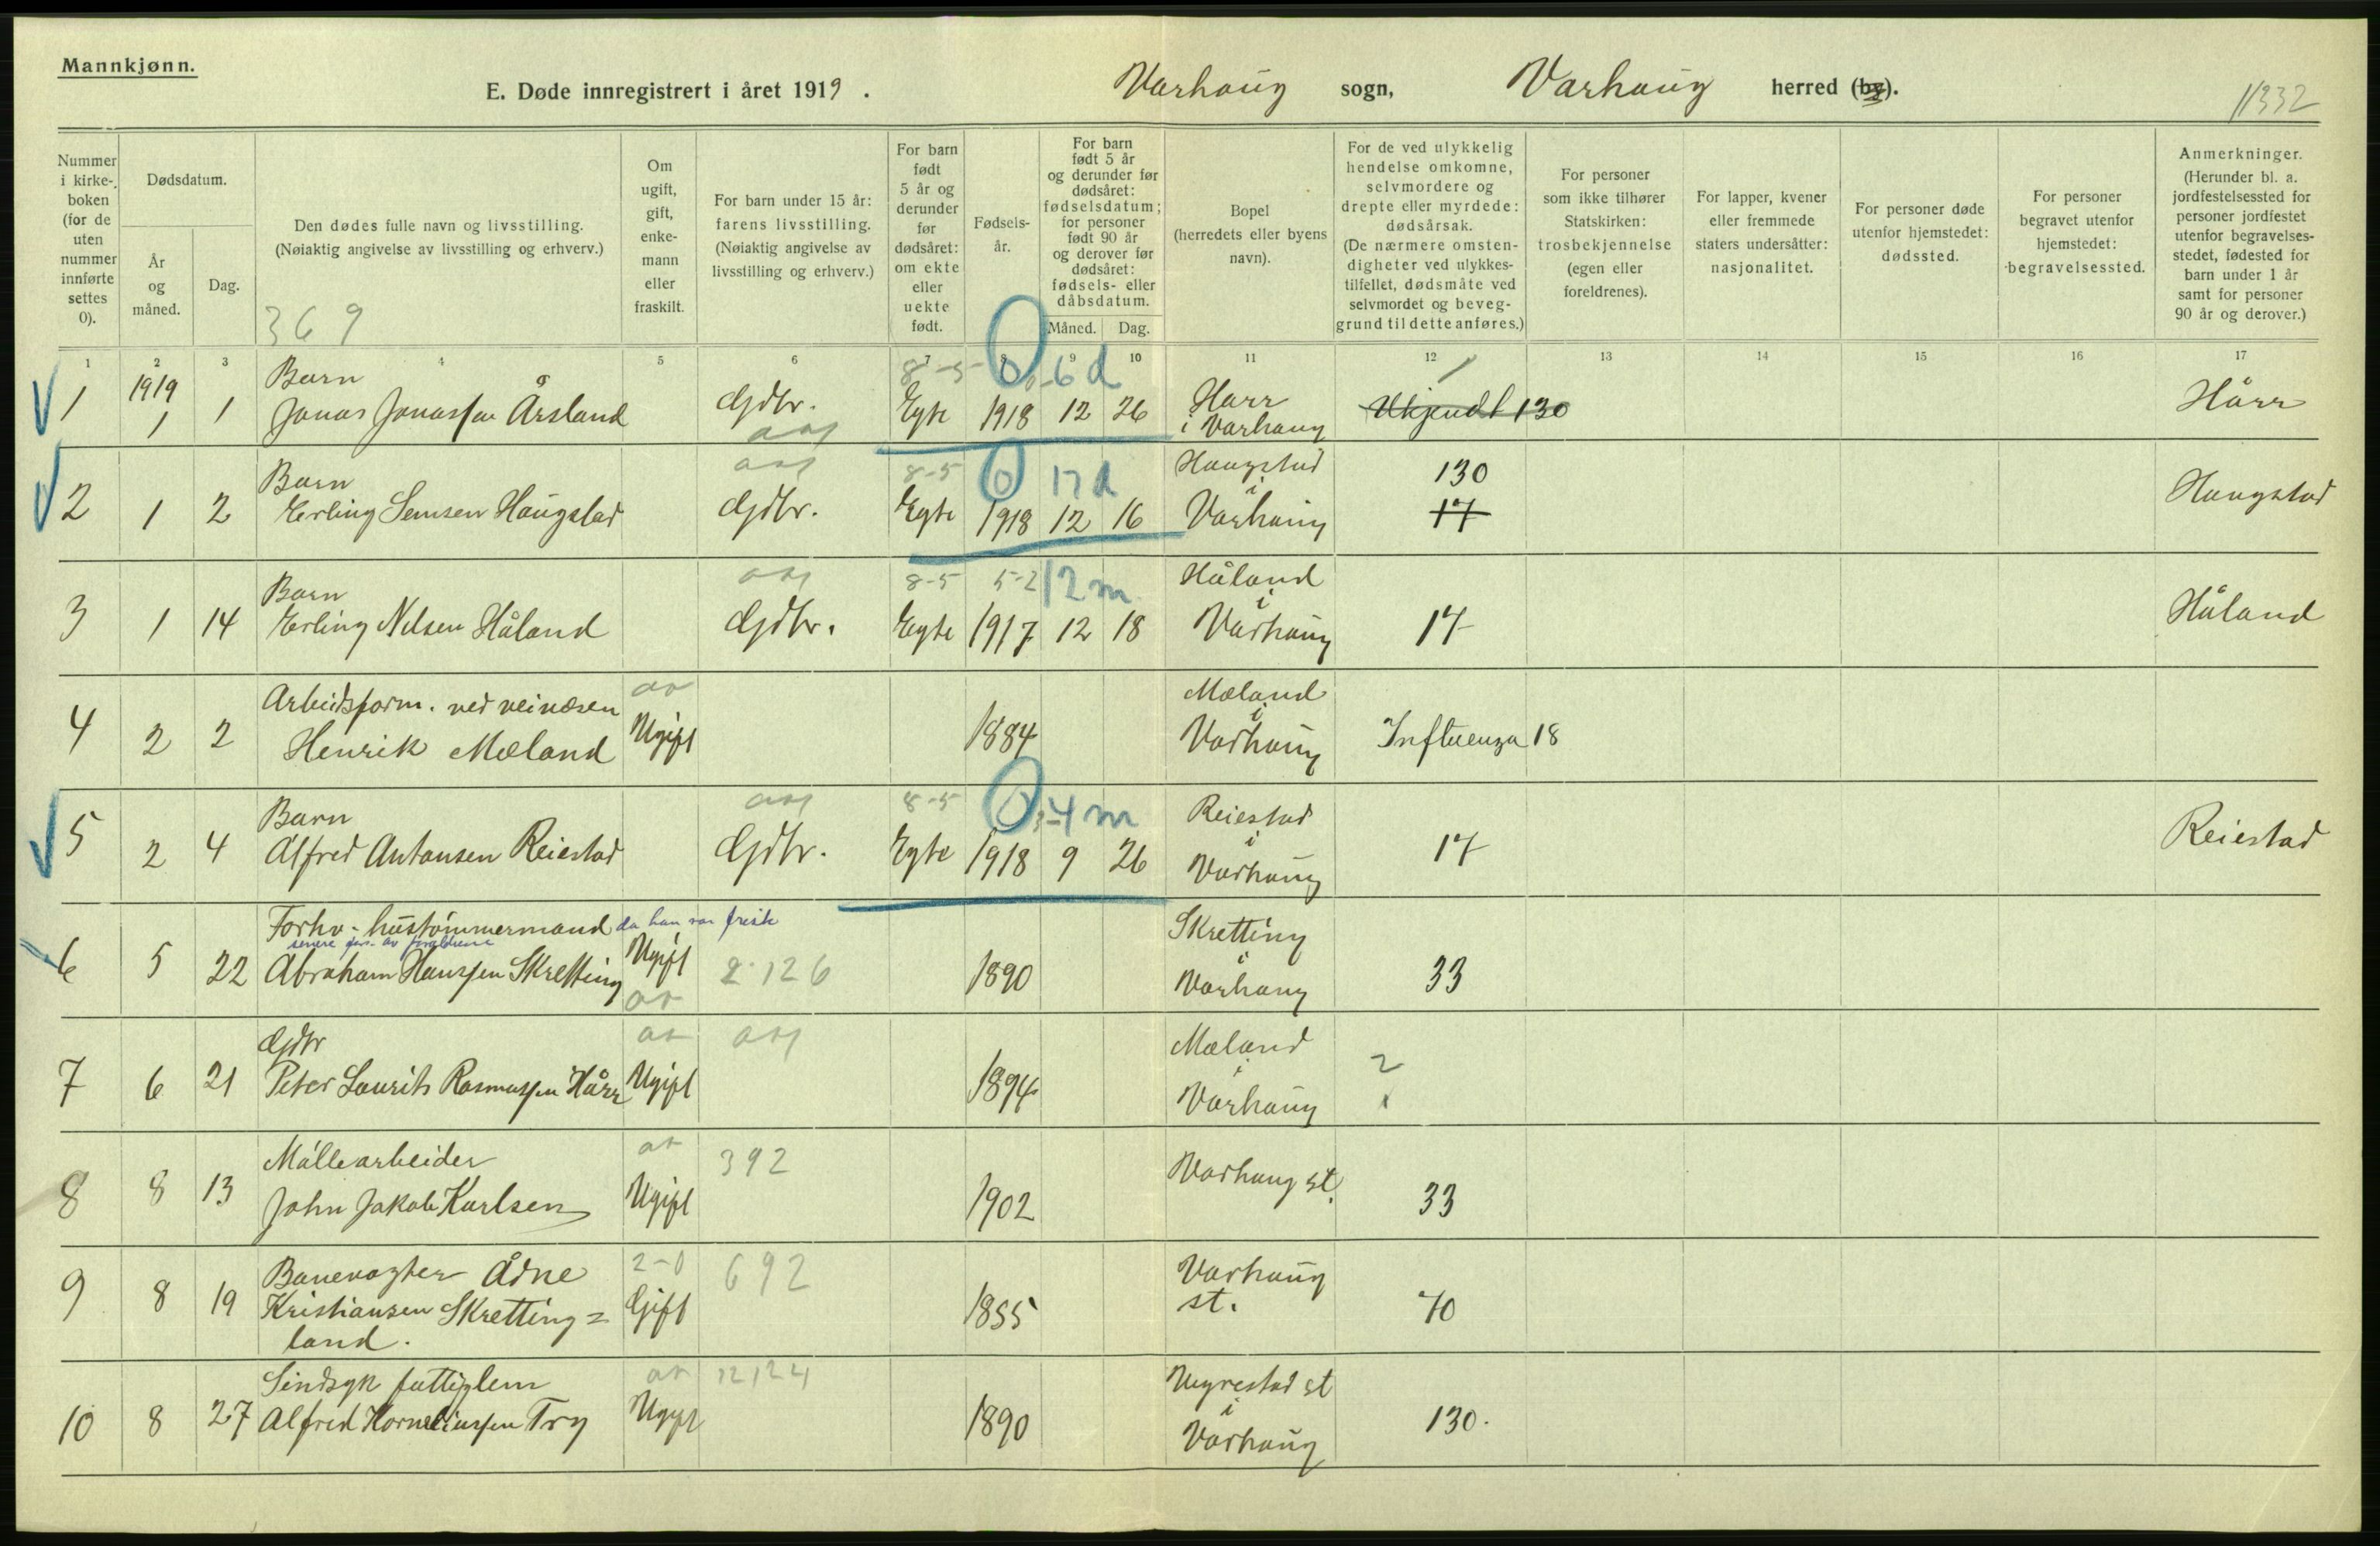 Mannkjønn.
E. Døde innregistrert i året 1919.
Varhaug sogn, Varhaug herred (by).
11332
Nummer i kirkeboken (for de uten nummer innførte settes 0).
Dødsdatum.
År og måned.
Dag.
Den dødes fulle navn og livsstilling.
(Nøiaktig angivelse av livsstilling og erhverv.)
369
Om ugift, gift, enkemann eller fraskilt.
For barn under 15 år: farens livsstilling.
(Nøiaktig angivelse av livsstilling og erhverv.)
For barn født 5 år og derunder før dødsåret: om ekte eller uekte født.
Fødselsår.
For barn født 5 år og derunder før dødsåret: fødselsdatum; for personer født 90 år og derover før dødsåret: fødsels- eller dåbsdatum.
Måned. Dag.
Bopel
(herredets eller byens navn).
For de ved ulykkelig hendelse omkomne, selvmordere og drepte eller myrdede: dødsårsak.
(De nærmere omstendigheter ved ulykkestilfellet, dødsmåte ved selvmordet og beveggrund til dette anføres.)
For personer som ikke tilhører Statskirken: trosbekjennelse
(egen eller foreldrenes).
For lapper, kvener eller fremmede staters undersåtter: nasjonalitet.
For personer døde utenfor hjemstedet: dødssted.
For personer begravet utenfor hjemstedet: begravelsessted.
Anmerkninger.
(Herunder bl. a. jordfestelsessted for personer jordfestet utenfor begravelsesstedet, fødested for barn under 1 år samt for personer 90 år og derover.)
1 2 3 4 5 6 7 8 9 10 11 12 13 14 15 16 17
8-5 0 0-6 d
Barn
1 1919 1 1 Jonas Jonassen Årsland Gdbr. Egte 1918 12 26 Harr i Varhaug Ukjendt 130 Hårr
8-5 0 17 d
Barn
2 1 2 Erling Semsen Haugstad Gdbr. Egte 1918 12 16 Haugstad i Varhaug 130 17 Haugstad
8-5 5-2 12 m
Barn
3 1 14 Erling Nilsen Håland Gdbr. Egte 1917 12 18 Håland i Varhaug 17 Håland
Arbeidsform. ved veivæsen
4 2 2 Henrik Mæland Ugift 1884 Mæland i Varhaug Influenza 18
8-5 0 3-4 m
Barn
5 2 4 Alfred Antonsen Reiestad Gdbr. Egte 1918 9 26 Reiestad i Varhaug 17 Reiestad
Forhv. hustømmermand da han var frisk
senere fors. av forældrene
6 5 22 Abraham Hanssen Skretting Ugift 2-126 1890 Skretting i Varhaug 33
Gdbr
7 6 21 Peter Laurits Rasmussen Hårr Ugift 1894 Mæland i Varhaug 2
Møllearbeider
8 8 13 John Jakob Karlsen Ugift 392 1902 Varhaug st. 33
Banevogter Ådne
9 8 19 Kristiansen Skretting= Gift 2-0 692 1855 Varhaug st. 70
land.
Sindsyk fattiglem
10 8 27 Alfred Korneliussen Try Ugift 12124 1890 Vigrestad st i Varhaug 130.